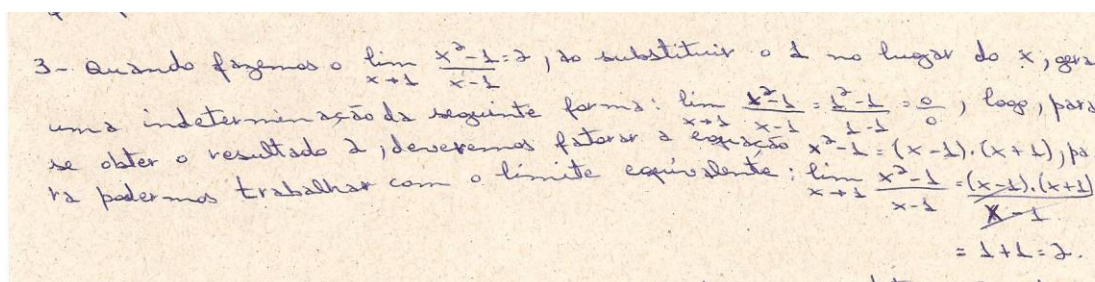 3- Quando fazemos o lim x→1 x²-1/x-1 = 2, ao substituir o 1 no lugar do x, gera
uma indeterminação da seguinte forma: lim x→1 x²-1/x-1 = 1²-1/1-1 = 0/0, logo, para
se obter o resultado 2, deveremos fatorar a equação x²-1 = (x-1).(x+1), pa-
ra podermos trabalhar com o limite equivalente: lim x→1 x²-1/x-1 = (x-1).(x+1)/x-1
= 1+1=2.